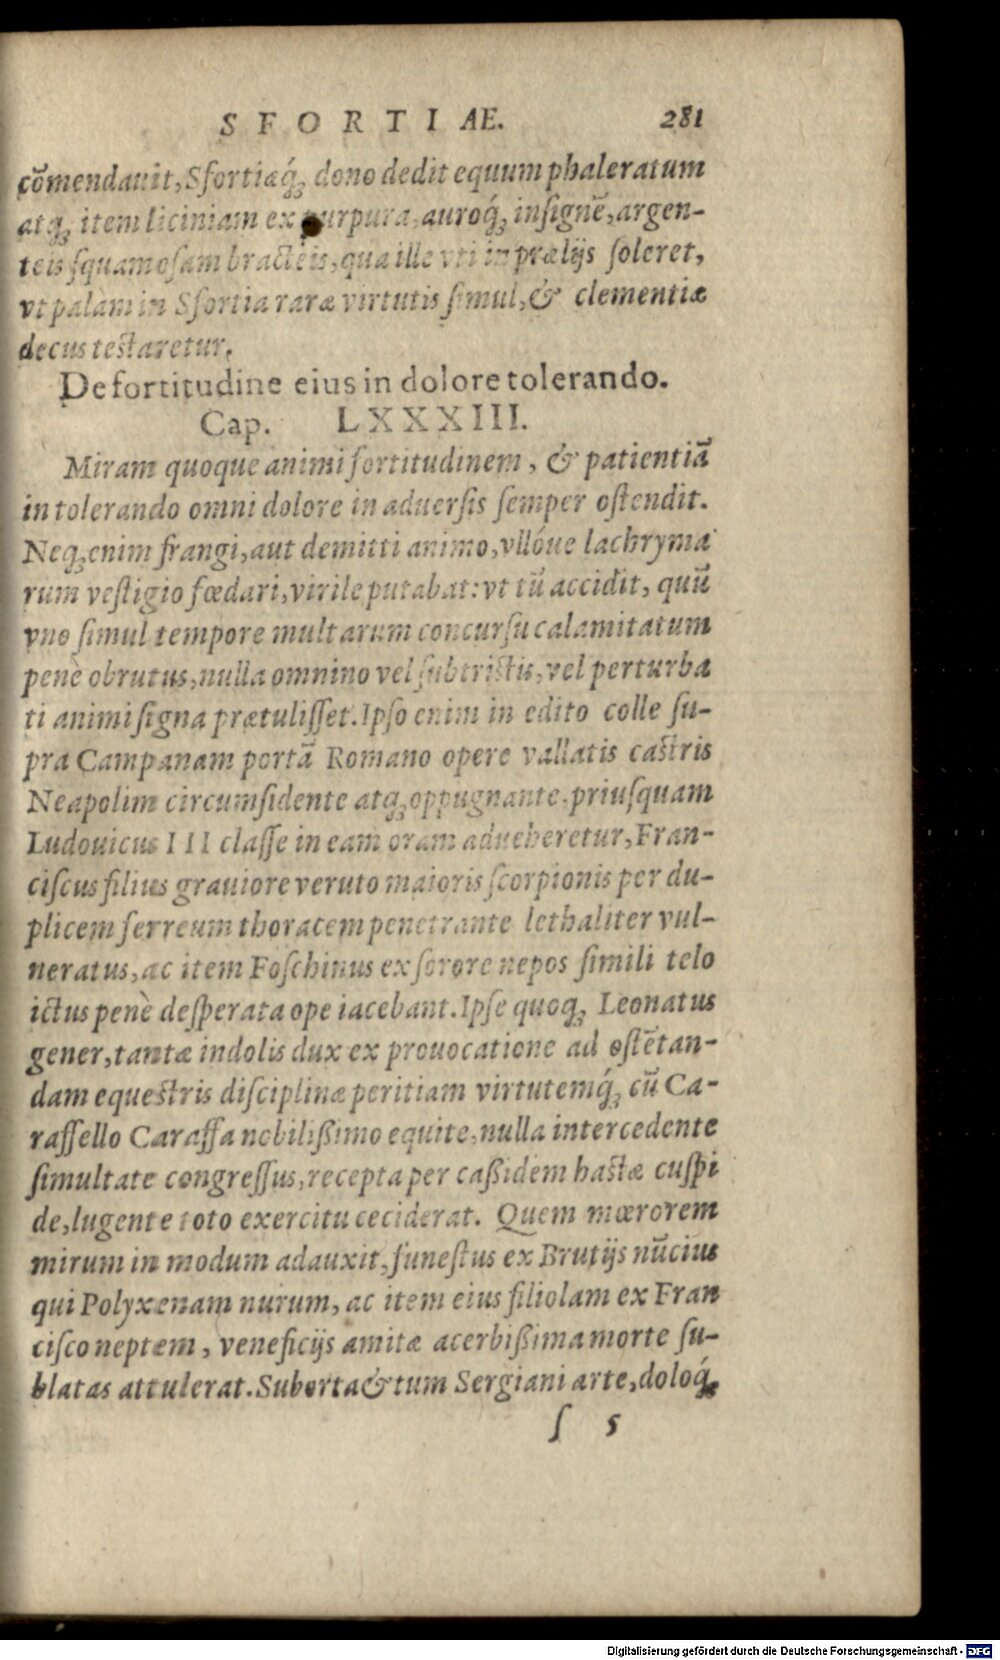 SFORTIAE. 281
cõmendauit, Sfortiæq́; dono dedit equum phaleratum
atq; item liciniam ex purpura, auroq́; insignẽ, argen-
teis squamosam bracteis, qua ille vti in prælijs soleret,
vt palàm in Sfortia raræ virtutis simul, & clementiæ
decus testaretur.
De fortitudine eius in dolore tolerando.
Cap. LXXXIII.
Miram quoque animi fortitudinem, & patientiã
in tolerando omni dolore in aduersis semper ostendit.
Neq; enim frangi, aut demitti animo, vllóue lachryma
rum vestigio fœdari, virile putabat: vt tũ accidit, quũ
vno simul tempore multarum concursu calamitatum
penè obrutus, nulla omnino vel subtristis, vel perturba
ti animi signa prætulisset. Ipso enim in edito colle su-
pra Campanam portã Romano opere vallatis castris
Neapolim circumsidente atq; oppugnante, priusquam
Ludouicus III classe in eam oram adueheretur, Fran-
ciscus filius grauiore veruto maioris scorpionis per du-
plicem ferreum thoracem penetrante lethaliter vul-
neratus, ac item Foschinus ex sorore nepos simili telo
ictus penè desperata ope iacebant. Ipse quoq; Leonatus
gener, tantæ indolis dux ex prouocatione ad ostẽtan-
dam equestris disciplinæ peritiam virtutemq́; cũ Ca-
raffello Caraffa nobilißimo equite, nulla intercedente
simultate congressus, recepta per caßidem hastæ cuspi
de, lugente toto exercitu ceciderat. Quem mœrorem
mirum in modum adauxit, funestus ex Brutijs nũcius
qui Polyxenam nurum, ac item eius filiolam ex Fran
cisco neptem, veneficijs amitæ acerbißima morte su-
blatas attulerat. Suborta & tum Sergiani arte, doloq́;
s 5
Digitalisierung gefördert durch die Deutsche Forschungsgemeinschaft - DFG